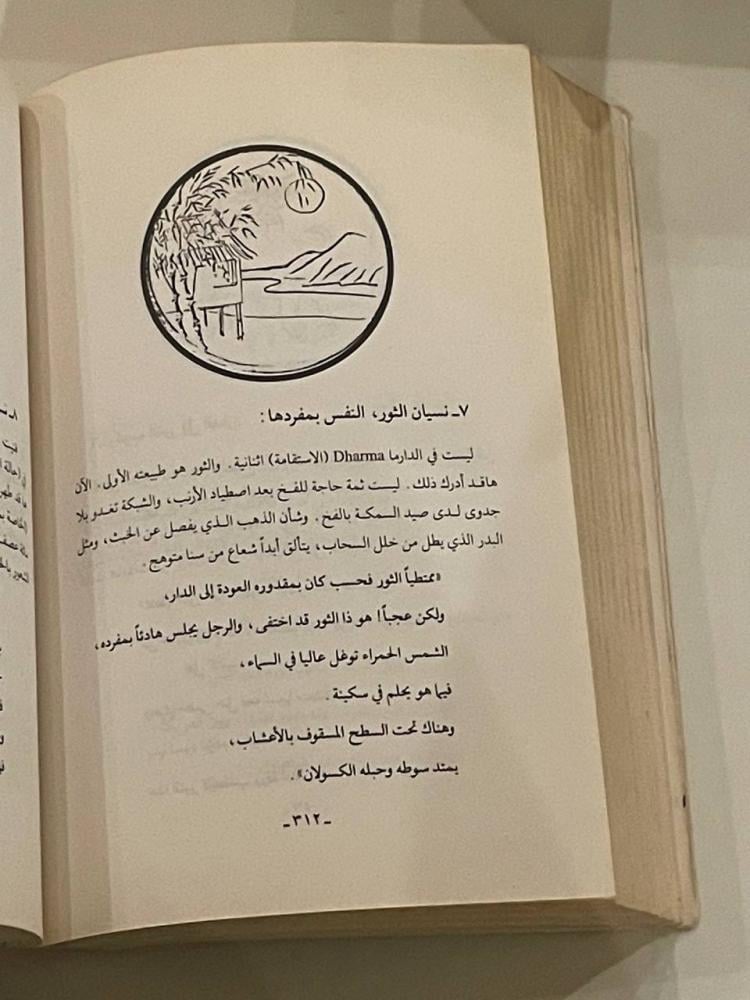 ٧ـ نسيان الثور، النفس بمفردها:
ليست في الدارما Dharma (الاستقامة) اثنانية. والثور هو طبيعته الأولى. الآن
هاقد أدرك ذلك. ليست ثمة حاجة للفخ بعد اصطياد الأرنب، والشبكة تغدو بلا
جدوى لدى صيد السمكة بالفخ. وشأن الذهب الذي يفصل عن الخبث، ومثل
البدر الذي يطل من خلل السحاب، يتألق أبداً شعاع من سنا متوهج.
«ممتطياً الثور فحسب كان بمقدوره العودة إلى الدار،
ولكن عجباً! هو ذا الثور قد اختفى، والرجل يجلس هادئاً بمفرده،
الشمس الحمراء توغل عاليا في السماء،
فيما هو يحلم في سكينة.
وهناك تحت السطح المسقوف بالأعشاب،
يمتد سوطه وحبله الكسولان».
ـ٣١٢ـ